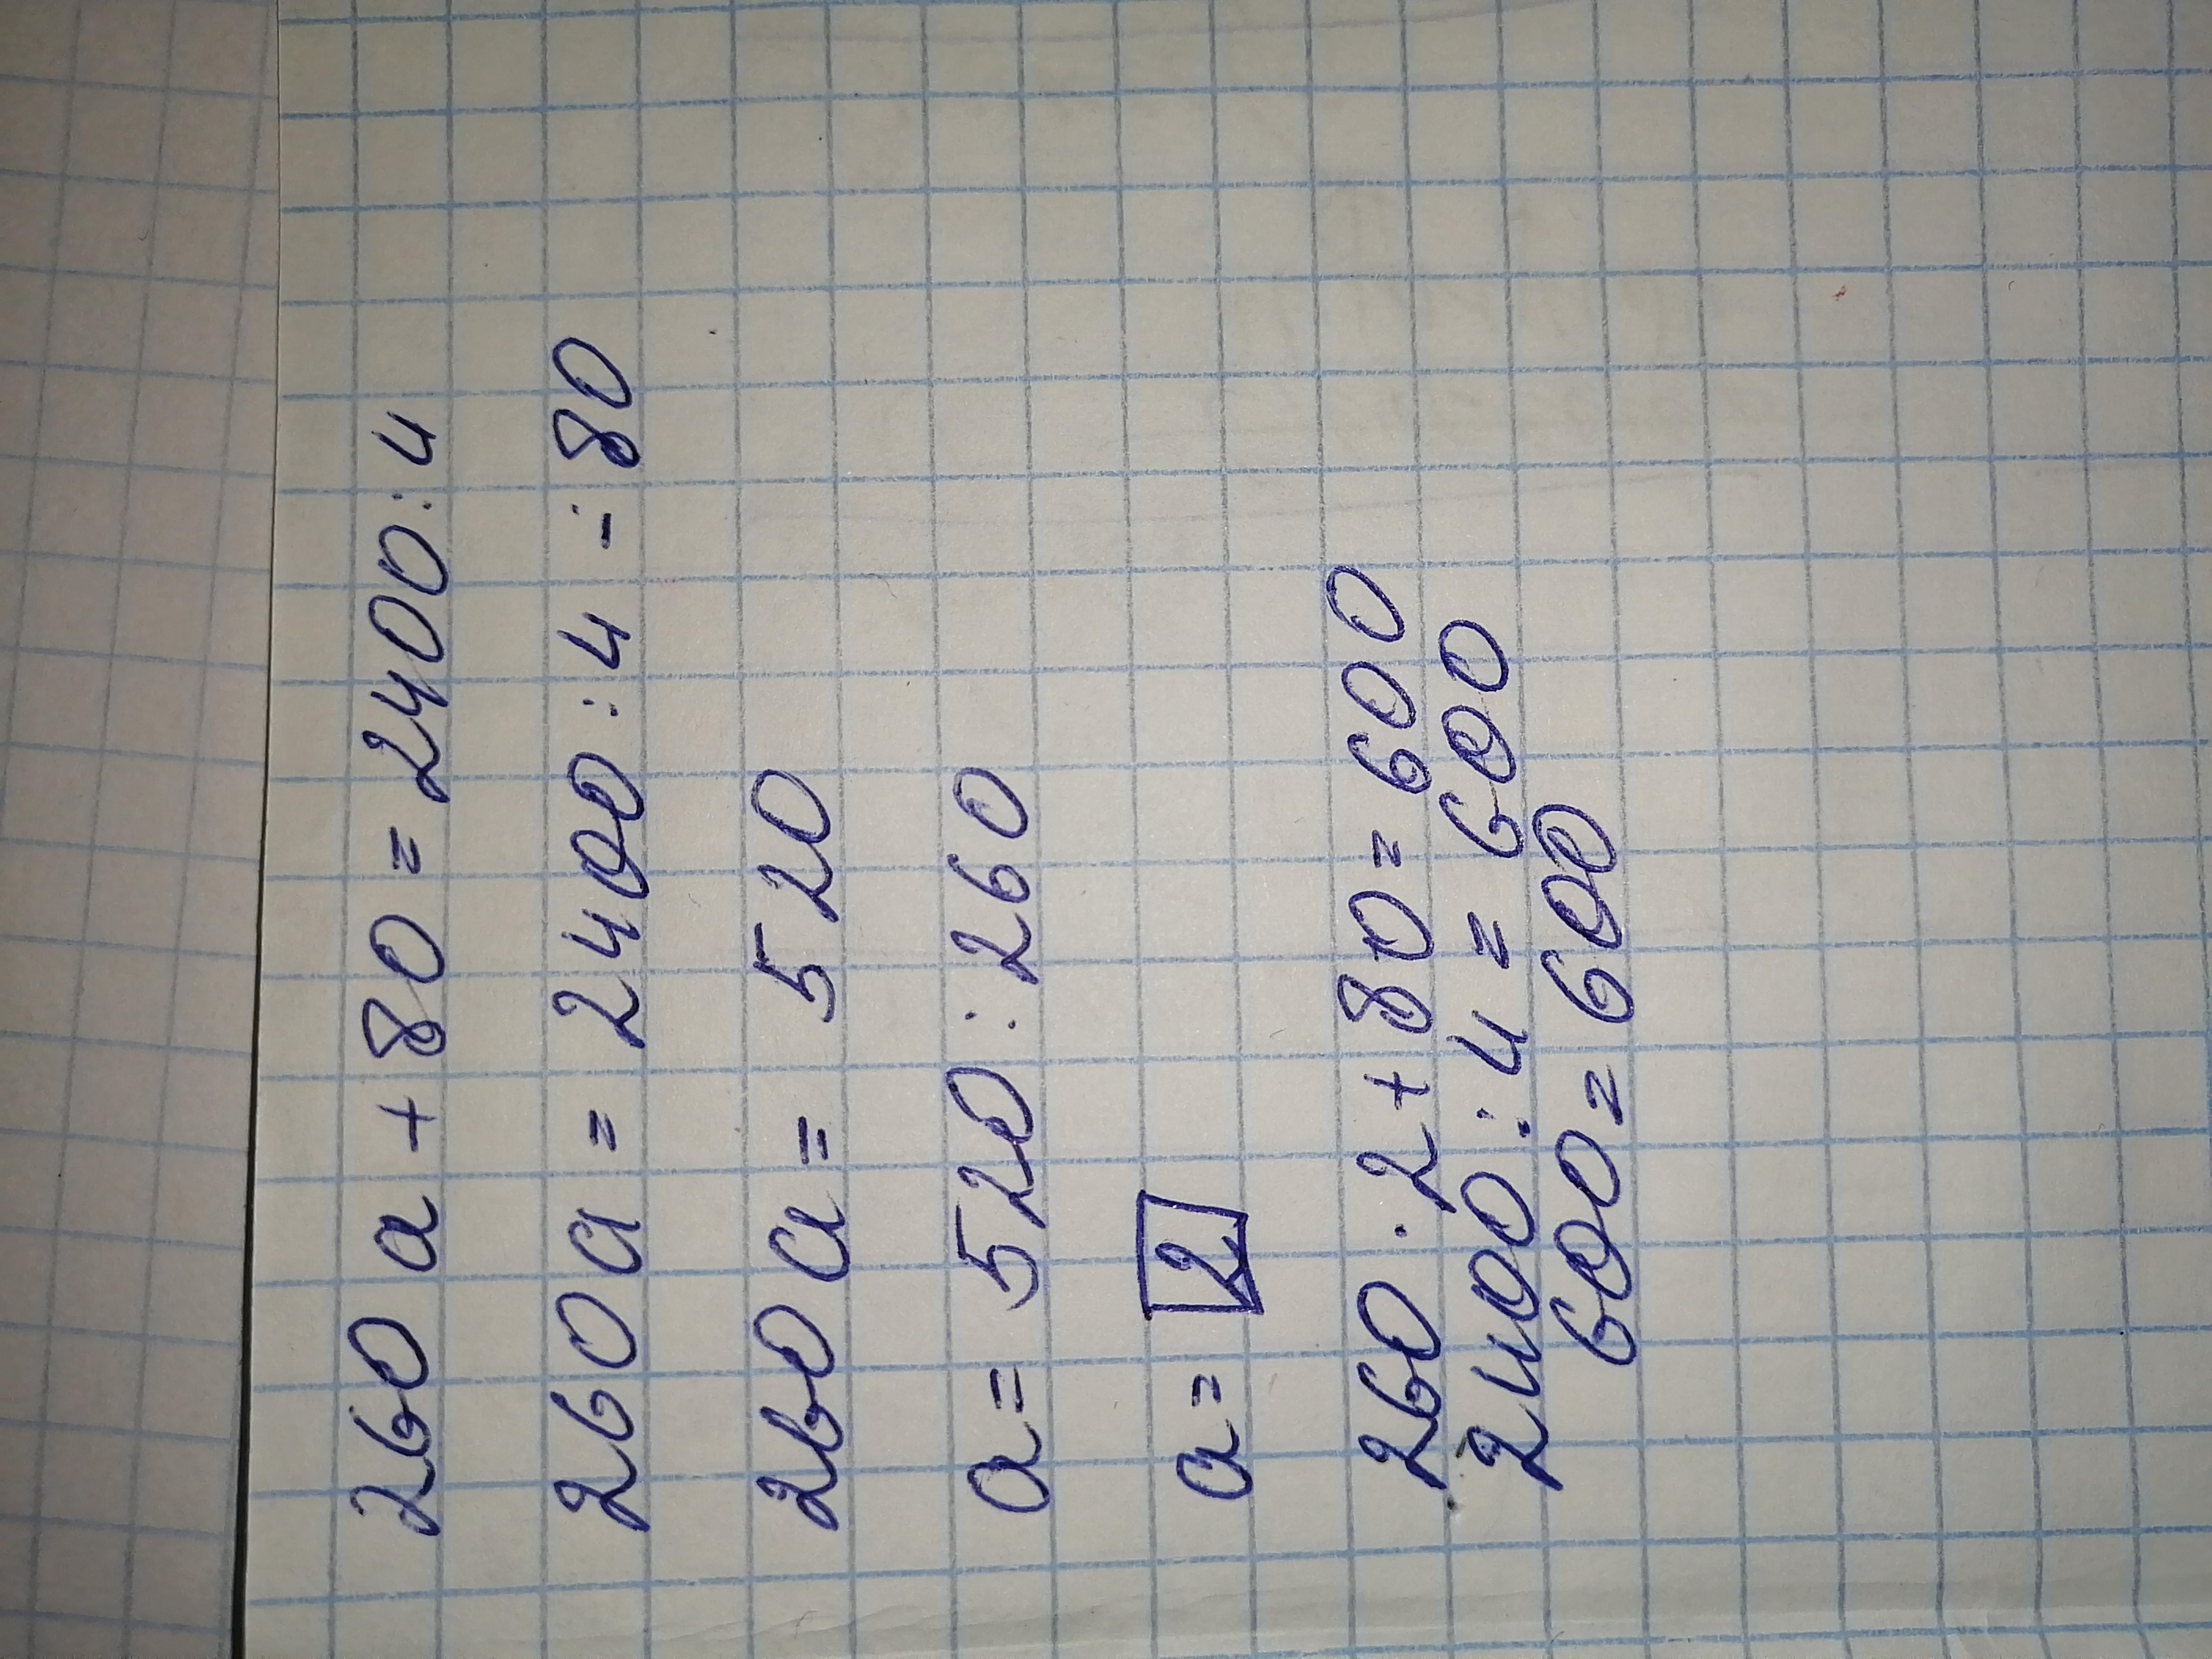 260 a + 80 = 2400 : 4
260 a = 2400 : 4 - 80
260 a = 520
a = 520 : 260
a = 2
260 · 2 + 80 = 600
2400 : 4 = 600
600 = 600